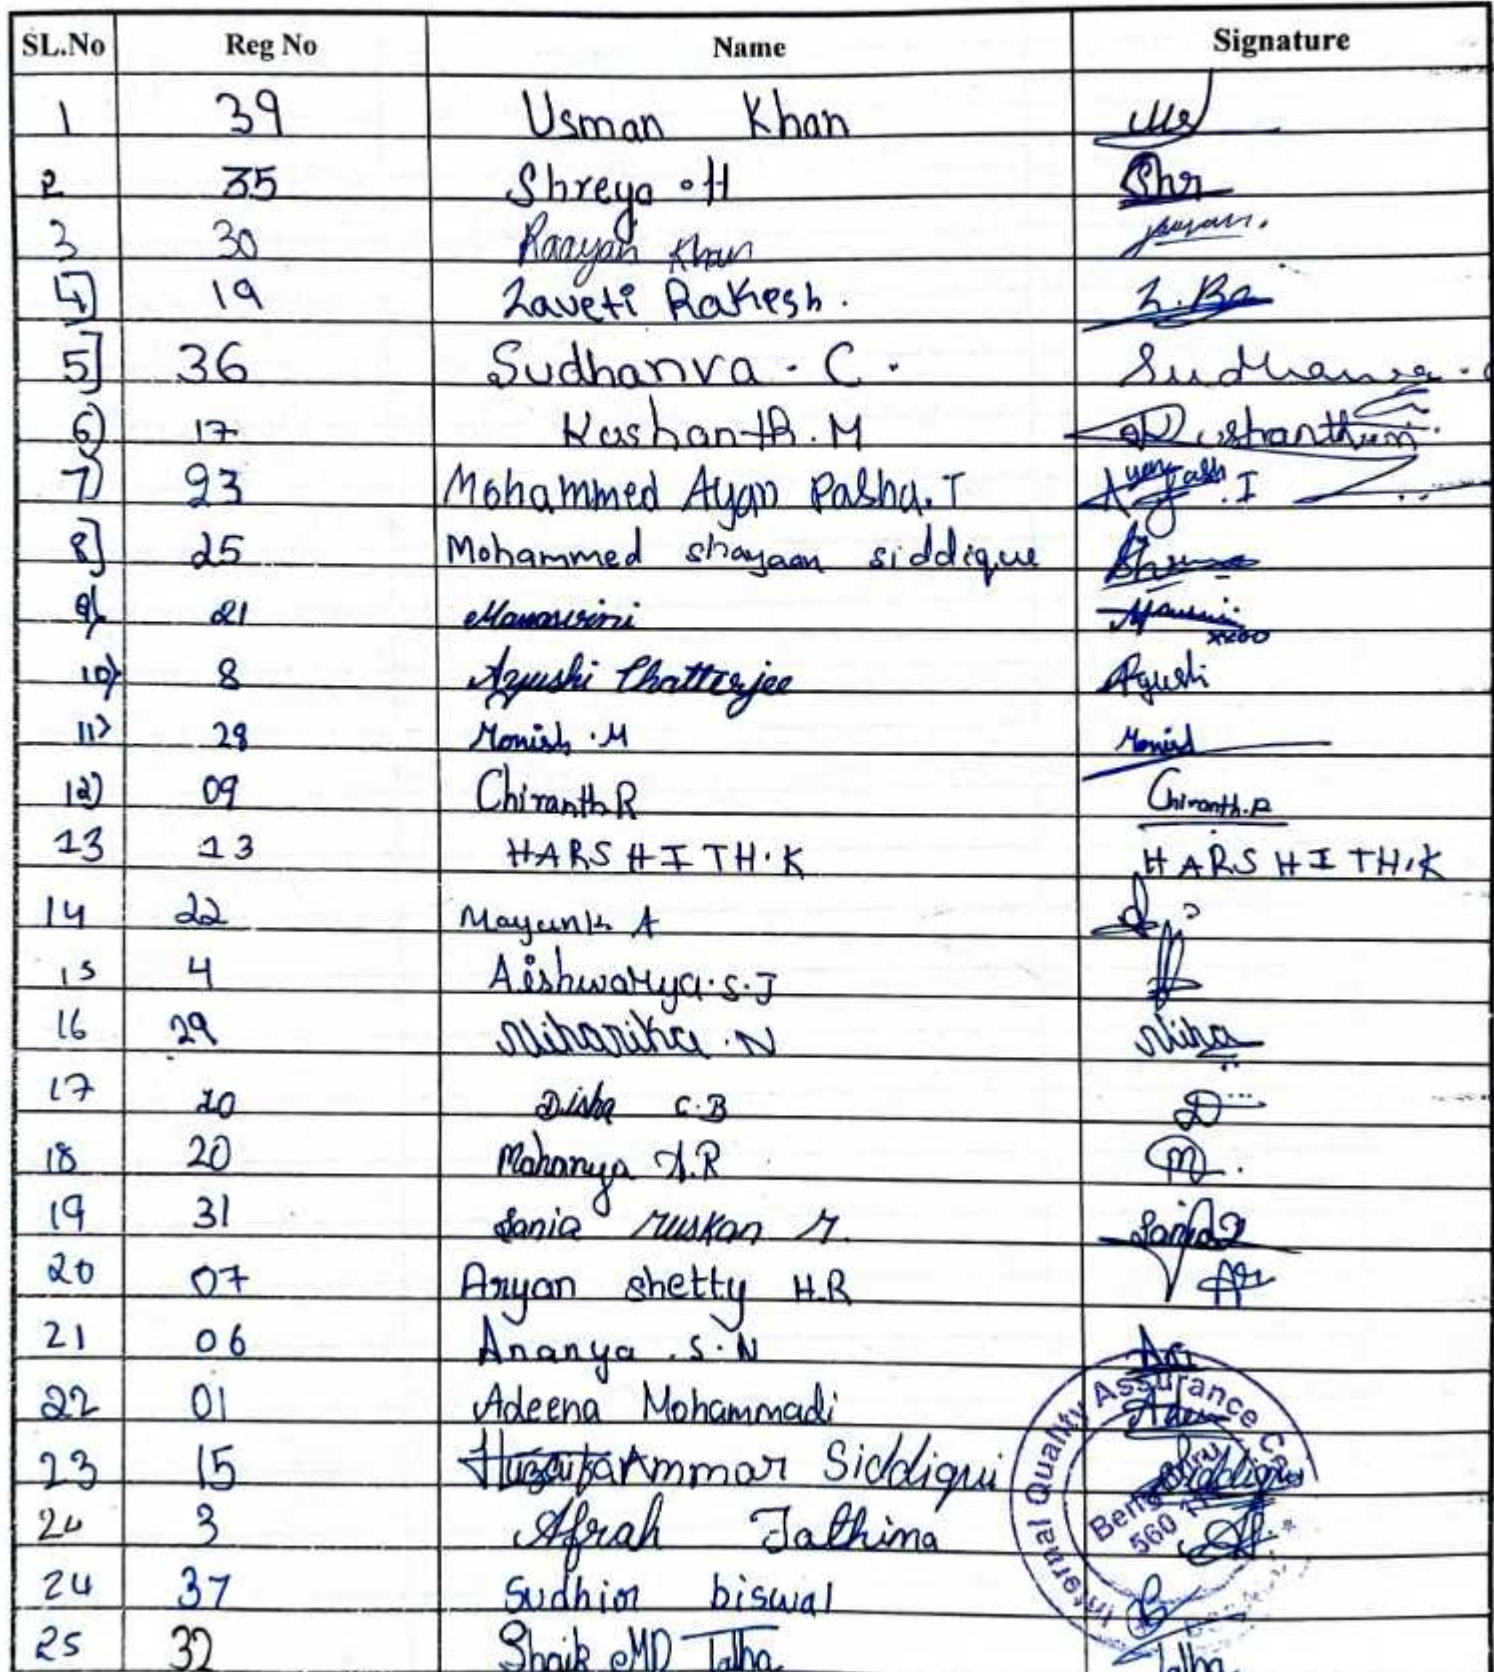 SL.No Reg No Name Signature
1 39 Usman Khan
2 35 Shreya . H Shr
3 30 Raayan Khan
4] 19 Zaveti Rakesh .
5] 36 Sudhanva . C . Sudhanva .
6) 17 Kushanth . M
7) 23 Mohammed Ayan Pasha. T
8] 25 Mohammed shayaan siddique
9) 21 Manaswini
10) 8 Ayushi Chatterjee Ayushi
11) 28 Monish . M Monish
12) 09 Chiranth R Chiranth.R
13 13 HARSHITH.K HARSHITH.K
14 22 Mayank A
15 4 Aishwarya.S.J
16 29 Niharika . N Niha
17 10 Disha C.B D
18 20 Mahanya A.R
19 31 Sania Muskan M. Sania
20 07 Aryan shetty H.R
21 06 Ananya . S . N
22 01 Adeena Mohammadi
23 15 Huzaifa Ammar Siddiqui Siddiqui
24 3 Afrah Fathima
24 37 Sudhir biswal
25 32 Shaik MD Talha Talha
Internal Quality Assurance
Bengaluru
560